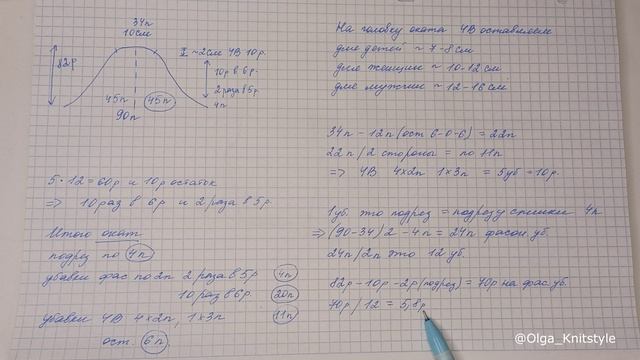 34п
10см
82р
I ~2см 4В 10р.
10р в 6р.
2 раза в 5р.
4п
45п 45п
90п
5·12=60р и 10р остаток
⇒ 10раз в 6р и 2 раза в 5р.
Итого окат
подрез по 4п
убавки фас по 2п 2 раза в 5р 4п
10 раз в 6р. 20п
убавки 4В 4х2п, 1х3п 11п
ост. 6п.
На головку оката 4В оставляем
для детей ~ 7-8см
для женщин ~ 10-12см
для мужчин ~ 12-16см
34п - 12п (ост 6-0-6) = 22п
22п/2 стороны = по 11п
⇒ 4В 4х2п 1х3п = 5уб = 10р.
1уб. это подрез = подрезу спинки 4п
⇒ (90-34)/2 - 4п = 24п фасон уб.
24п/2п это 12 уб.
82р - 10р - 2р(подрез) = 70р на фас уб.
70р/12 = 5,8р
@Olga_Knitstyle